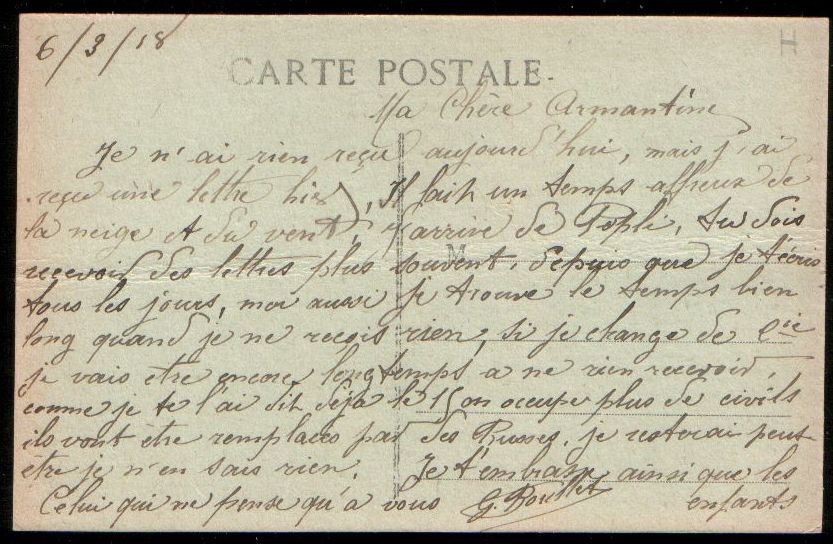 6/3/18
H
CARTE POSTALE.
Ma Chère Armantine
Je n'ai rien reçu aujourd'hui, mais j'ai
reçu une lettre hier, Il fait un temps affreux de
la neige et du vent, j'arrive de Pepli, tu dois
recevoir des lettres plus souvent, depuis que je t'écris
tous les jours, moi aussi je trouve le temps bien
long quand je ne reçois rien, si je change de Cie
je vais être encore longtemps a ne rien recevoir,
comme je te l'ai dit déja le 15 on occupe plus de civils
ils vont être remplacés par des Russes, je resterai peut-
être je n'en sais rien. Je t'embrasse ainsi que les
enfants
Celui qui ne pense qu'a vous G. Rouillet